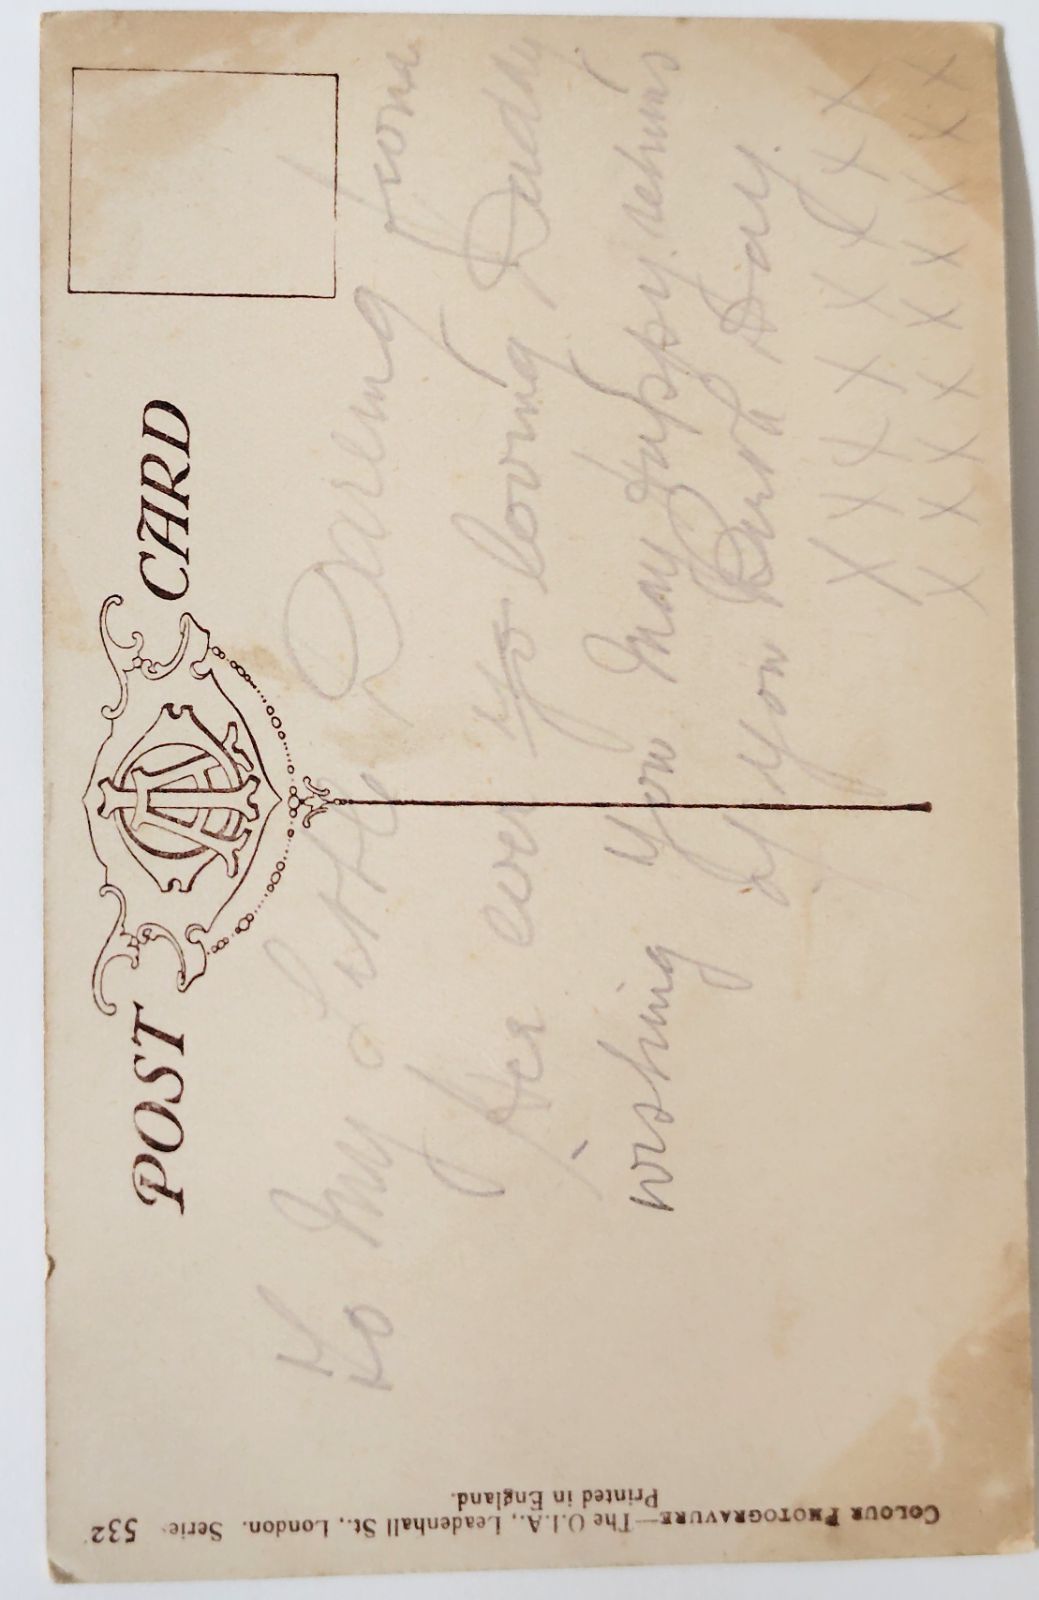 POST CARD
To My Little Darling from
Her ever so loving Daddy
wishing you Many Happy returns
of you Birth Day
X X X X X X X X
X X X X X X X X X
COLOUR PHOTOGRAVURE—The O.I.A., Leadenhall St., London. Serie 532
Printed in England.